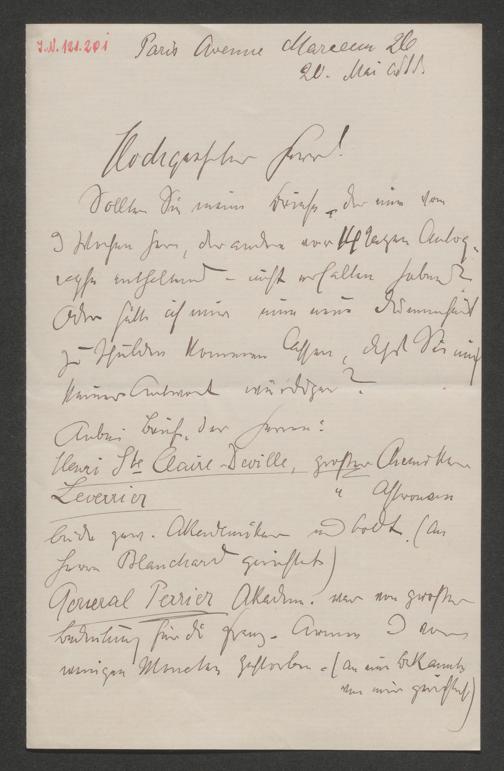 I.N. 121.201
Paris Avenue Marceau 26
20. Mai
Hochgeehrter Herr!
Sollten Sie meine Briefe, der eine vor
3 Wochen der andere vor 14 Tagen Autog-
raphe enthaltend - nicht erhalten haben?
Oder hätte ich mir nun eine
zu Schulden kommen lassen, daß Sie mich
keiner Antwort würdigen?
Anbei Briefe der Herren:
Henri Ste Claire-Deville, großer Chemiker
Leverrier " Astronom
beide gew. Akademiker und todt. (an
Herrn Blanchard gerichtet)
General Perrier Akadem. war von großer
Bedeutung für die franz. Armee vor
wenigen Monaten gestorben - (an eine Bekannte
von mir gerichtet)